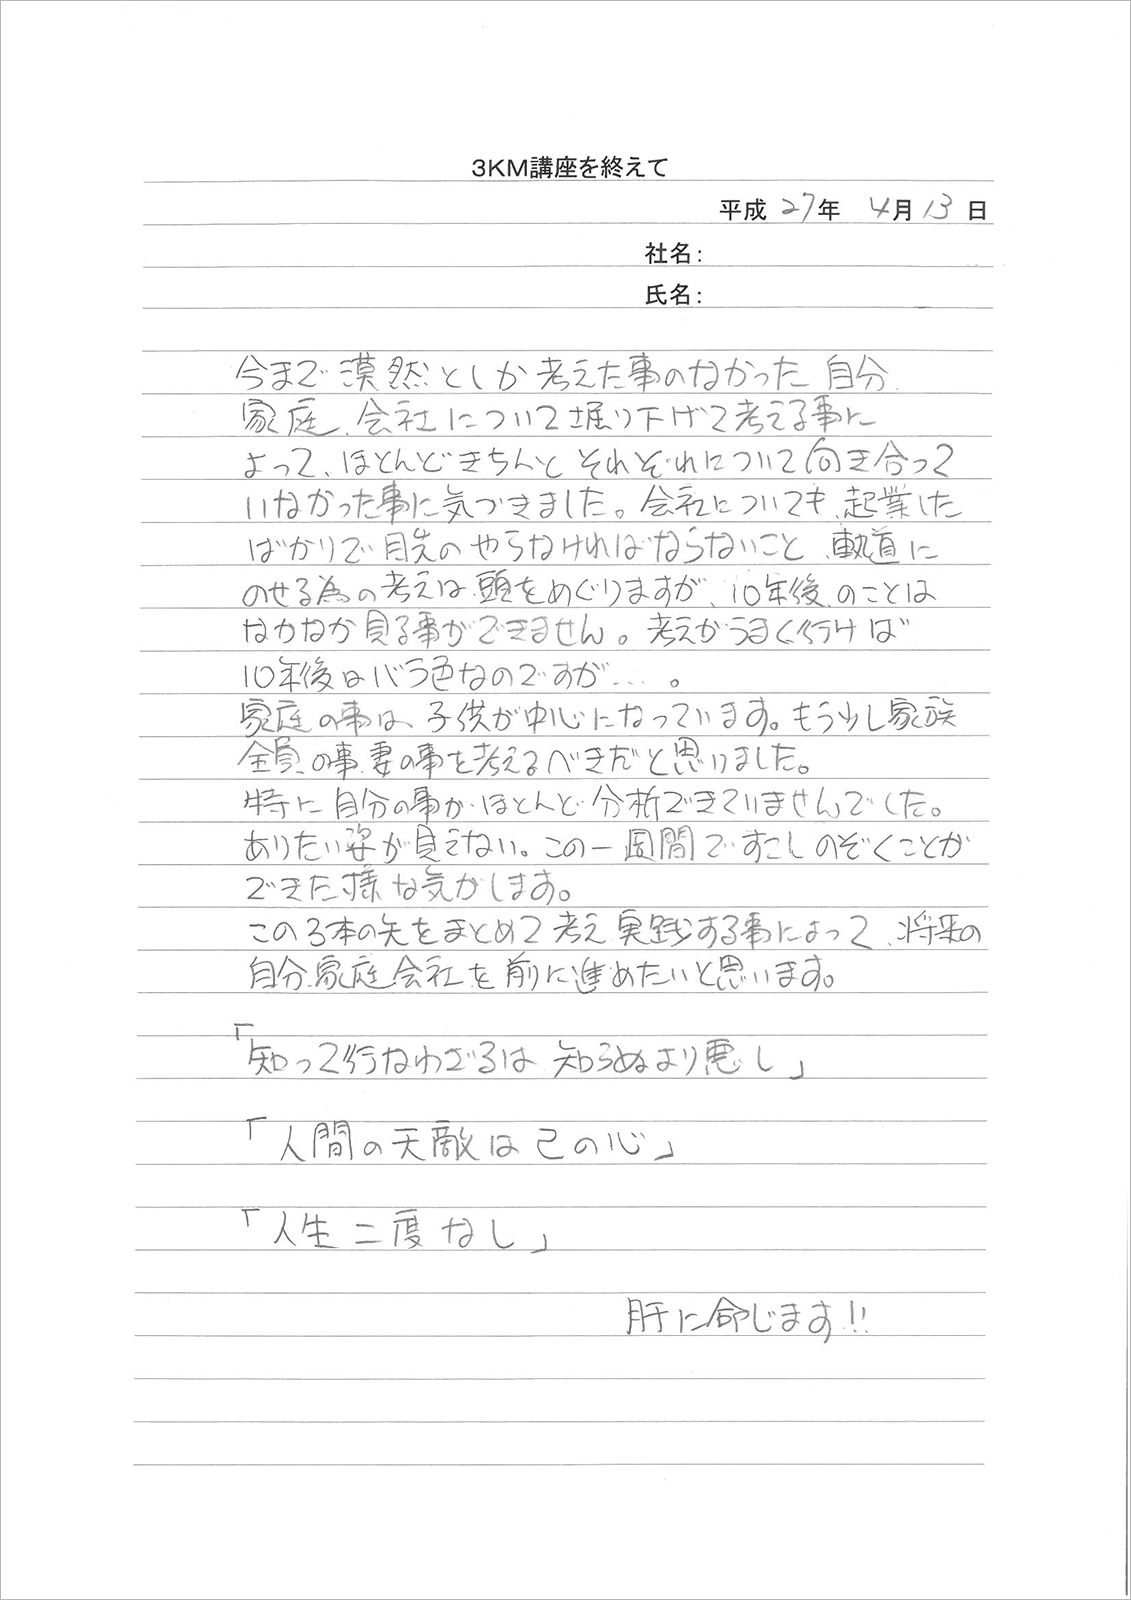 3KM講座を終えて
平成 27年 4月 13 日
社名:
氏名:
今まで漠然としか考えた事のなかった 自分、
家庭、会社について堀り下げて考える事に
よって、ほとんどきちんと それぞれについて向き合って
いなかった事に気づきました。会社についても、起業した
ばかりで目先のやらなければならないこと、軌道に
のせる為の考えは頭をめぐりますが、10年後のことは
なかなか見る事ができません。考えがうまく行けば
10年後はバラ色なのですが…。
家庭の事は、子供が中心になっています。もう少し家族
全員の事、妻の事を考えるべきだと思いました。
特に自分の事がほとんど分析できていませんでした。
ありたい姿が見えない。この一週間ですこしのぞくことが
できた様な気がします。
この3本の矢をまとめて考え実践する事によって、将来の
自分、家庭、会社を前に進めたいと思います。
「知って行なわざるは 知らぬより悪し」
「人間の天敵は己の心」
「人生二度なし」
肝に命じます!!